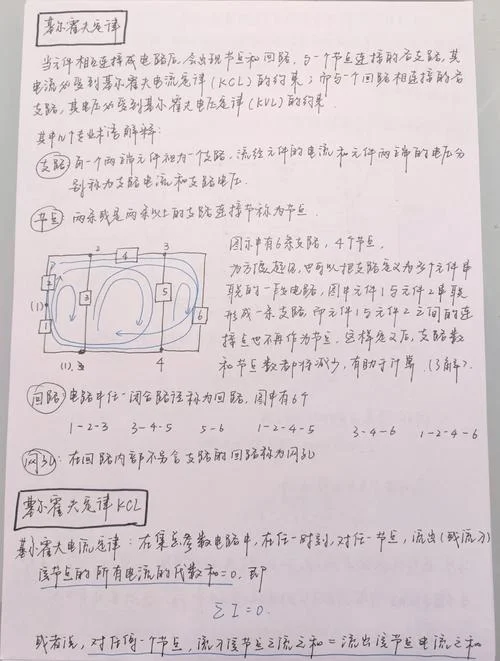 基尔霍夫定律
当元件相互连接成电路后,会出现节点和回路,与一个节点连接的各支路,其
电流必受到基尔霍夫电流定律(KCL)的约束;而与一个回路相连接的各
支路,其电压必受到基尔霍夫电压定律(KVL)的约束.
其中几个专业术语解释:
支路:每一个两端元件视为一个支路,流经元件的电流和元件两端的电压分
别称为支路电流和支路电压.
节点:两条或是两条以上的支路连接节称为节点.
图示中有6条支路,4个节点,
为方便起见,也可以把支路定义为多个元件串
联的一段电路,图中元件1与元件2串联
形成一条支路,而元件1与元件2之间的连
接点也不再作为节点.这样定义后,支路数
和节点数都将减少,有助于计算.(了解).
2
3
4
2
(1)
1
3
5
6
(1).
4
回路:电路中任一闭合路径称为回路,图中有6个
1-2-3 3-4-5 5-6 1-2-4-5 3-4-6 1-2-4-6
网孔:在回路内部不另含支路的回路称为网孔
基尔霍夫定律KCL
基尔霍夫电流定律:在集总参数电路中,在任一时刻,对任一节点,流出(或流入)
该节点的所有电流的代数和=0,即
ΣI=0.
或者说,对任何一个节点,流入该节点之流之和=流出该节点电流之和